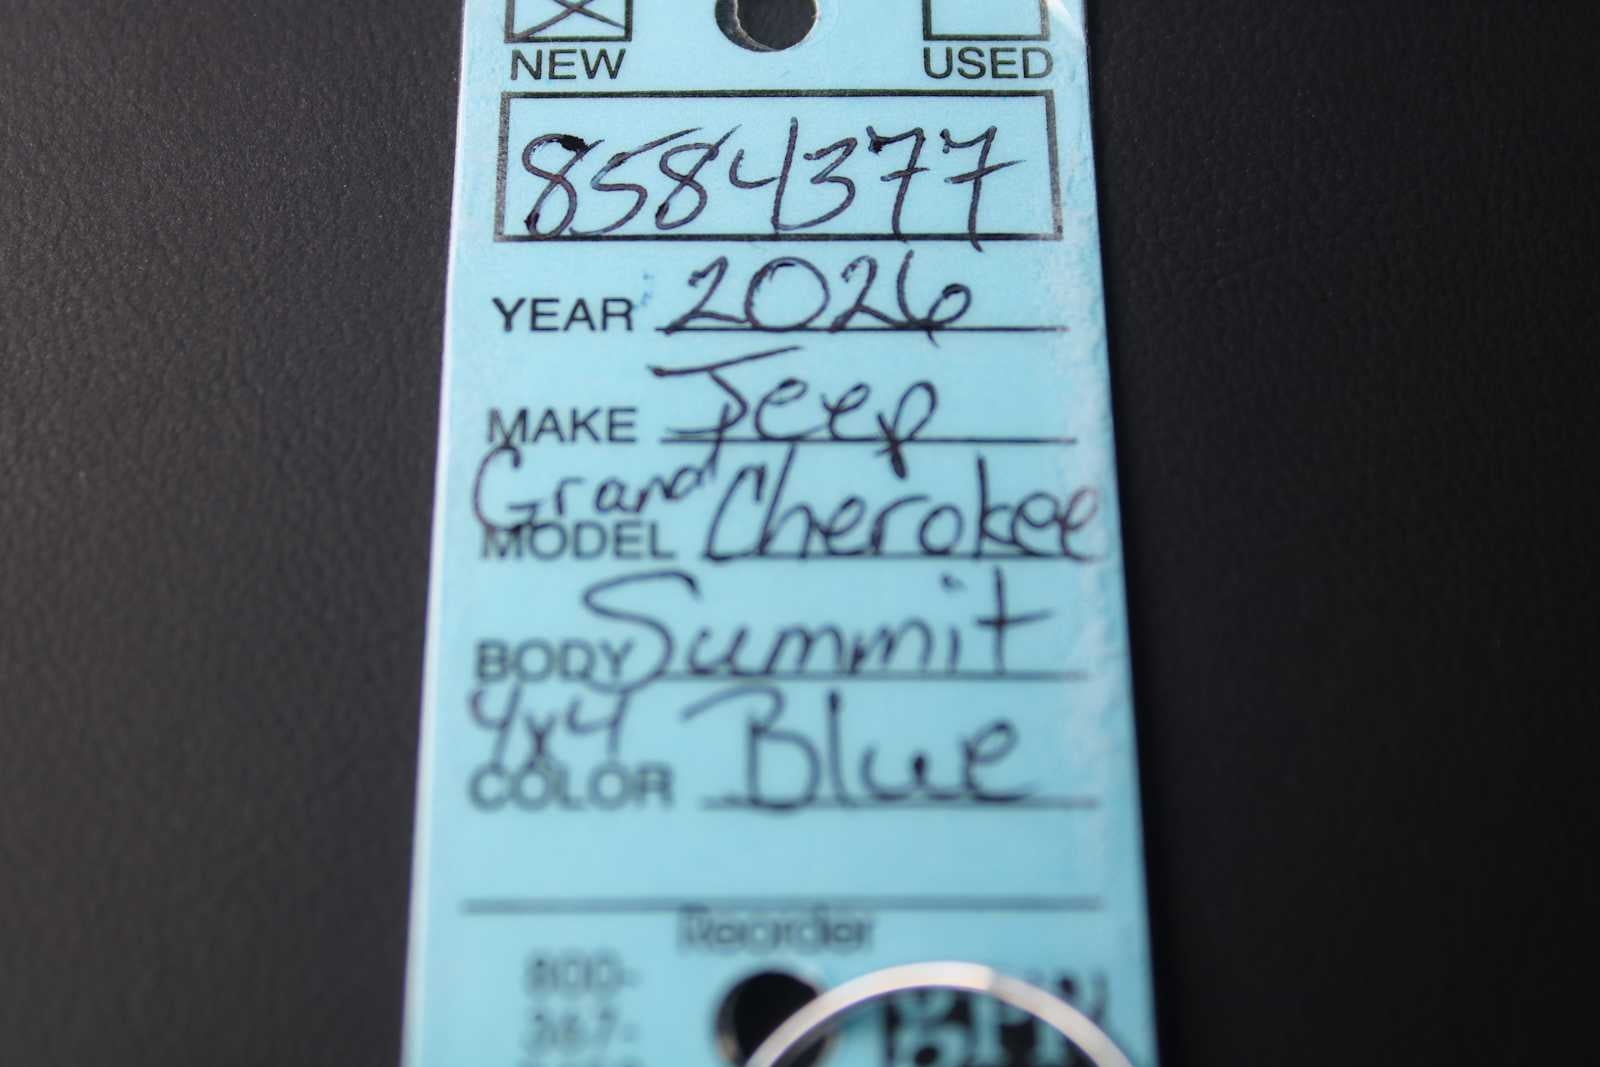 NEW USED
8584377
YEAR 2026
MAKE Jeep
Grand Cherokee
MODEL
BODY Summit
4x4 Blue
COLOR
Reorder
800-
367-